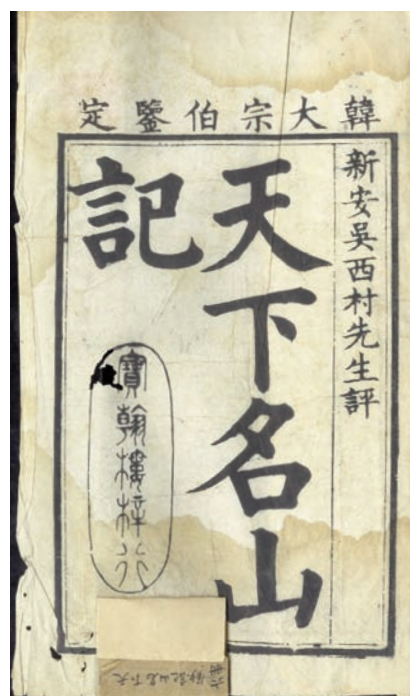 韓大宗伯鑒定
新安吳西村先生評
天下名山
記
寶翰樓梓行
天下名山記鈔